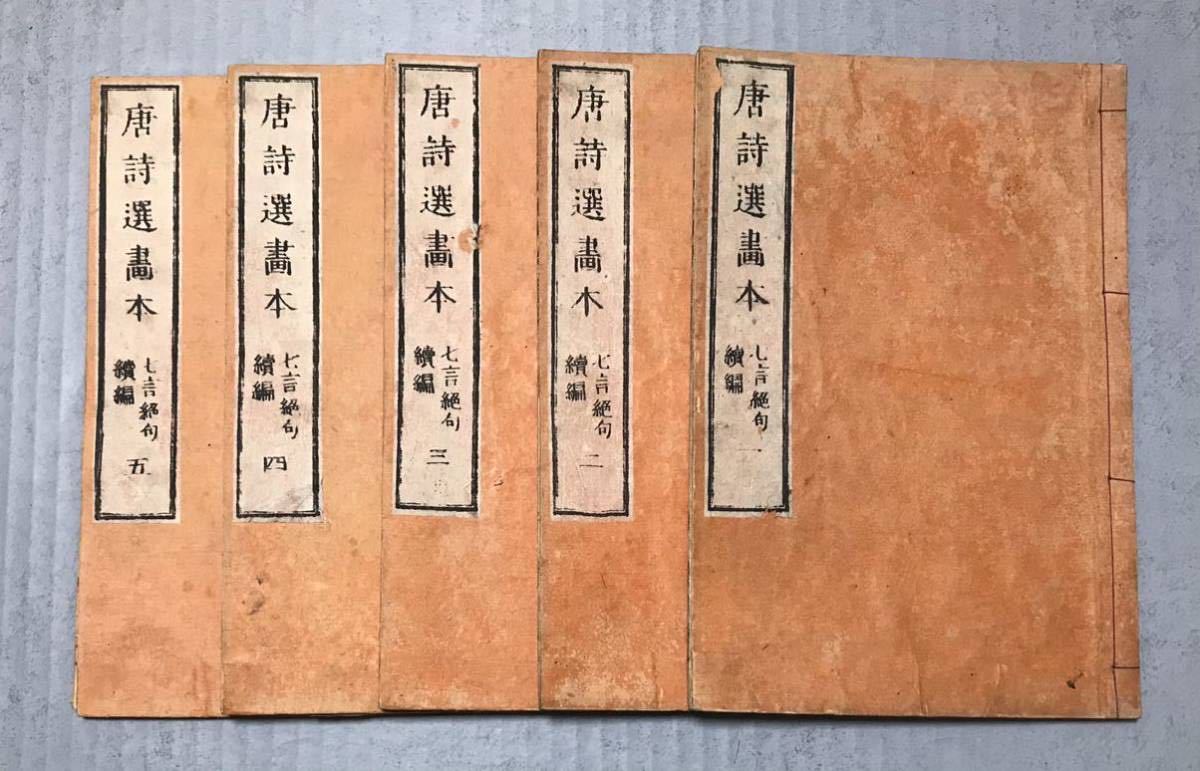 唐詩選畫本 七言絕句 續編 一
唐詩選畫本 七言絕句 續編 二
唐詩選畫本 七言絕句 續編 三
唐詩選畫本 七言絕句 續編 四
唐詩選畫本 七言絕句 續編 五